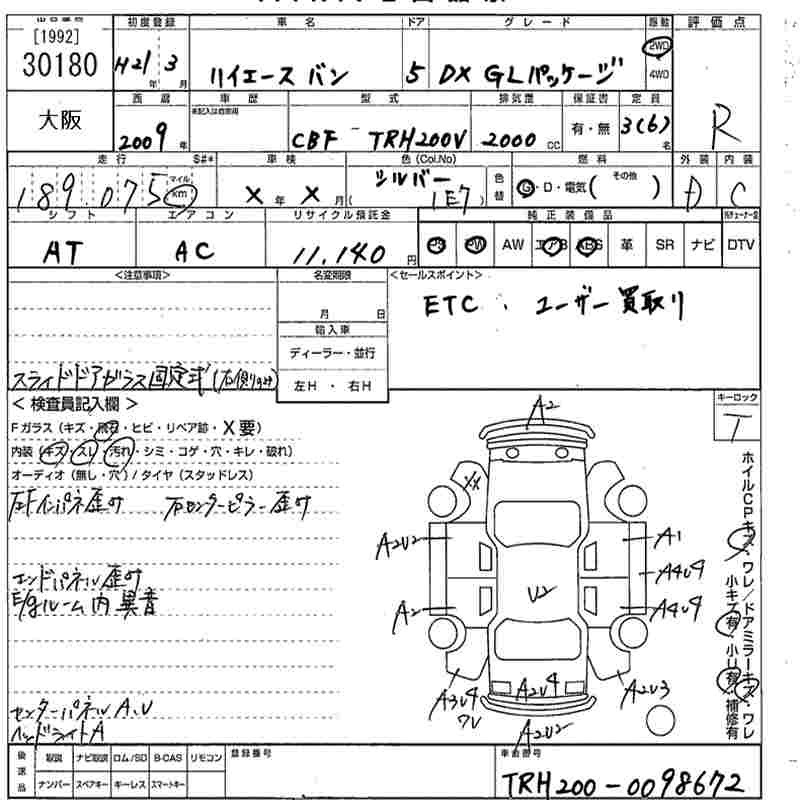 [1992]
30180
大阪
初度登録 車名 ドア グレード 駆動 評価点
H21年 3月 ハイエース バン 5 DX GLパッケージ 2WD 4WD R
西暦 車歴 型式 排気量 保証書 定員
2009年 未記入は自家用 CBF TRH200V 2000cc 有・無 3(6)名
走行 S#* 車検 色(Col.No) 燃料 外装 内装
189.075 マイル km X年 X月 シルバー (1E7) 色替 G・D・電気( その他 ) D C
シフト エアコン リサイクル預託金 純正装備品
AT AC 11.140円 PS PW AW エアB ABS 革 SR ナビ DTV
<注意事項> 名変期限 <セールスポイント>
月 日 ETC、ユーザー買取り
輸入車
ディーラー・並行
左H・右H
スライドドアガラス固定式(右側リヤ)
<検査員記入欄>
キーロック
T
Fガラス(キズ・飛石・ヒビ・リペア跡・X要)
内装(キズ・スレ・汚れ・シミ・コゲ・穴・キレ・破れ)
オーディオ(無し・穴)/タイヤ(スタッドレス)
右センターピラー歪み
エンドパネル歪み
E/gルーム内異音
センターパネルA、U
ヘッドライトA
A2
XX
A2U2
A1
A4U4
U2
A2
A4U4
A3U4
A2U4
A2U3
A2U2
ホイルCPキズ・ワレ/ドアミラーキズ・ワレ
小キズ有・小U有・補修有
後送品 取説 ナビ取説 ロム/SD B-CAS リモコン 登録番号 車台番号
ナンバー スペアキー キーレス スマートキー TRH200-0098672